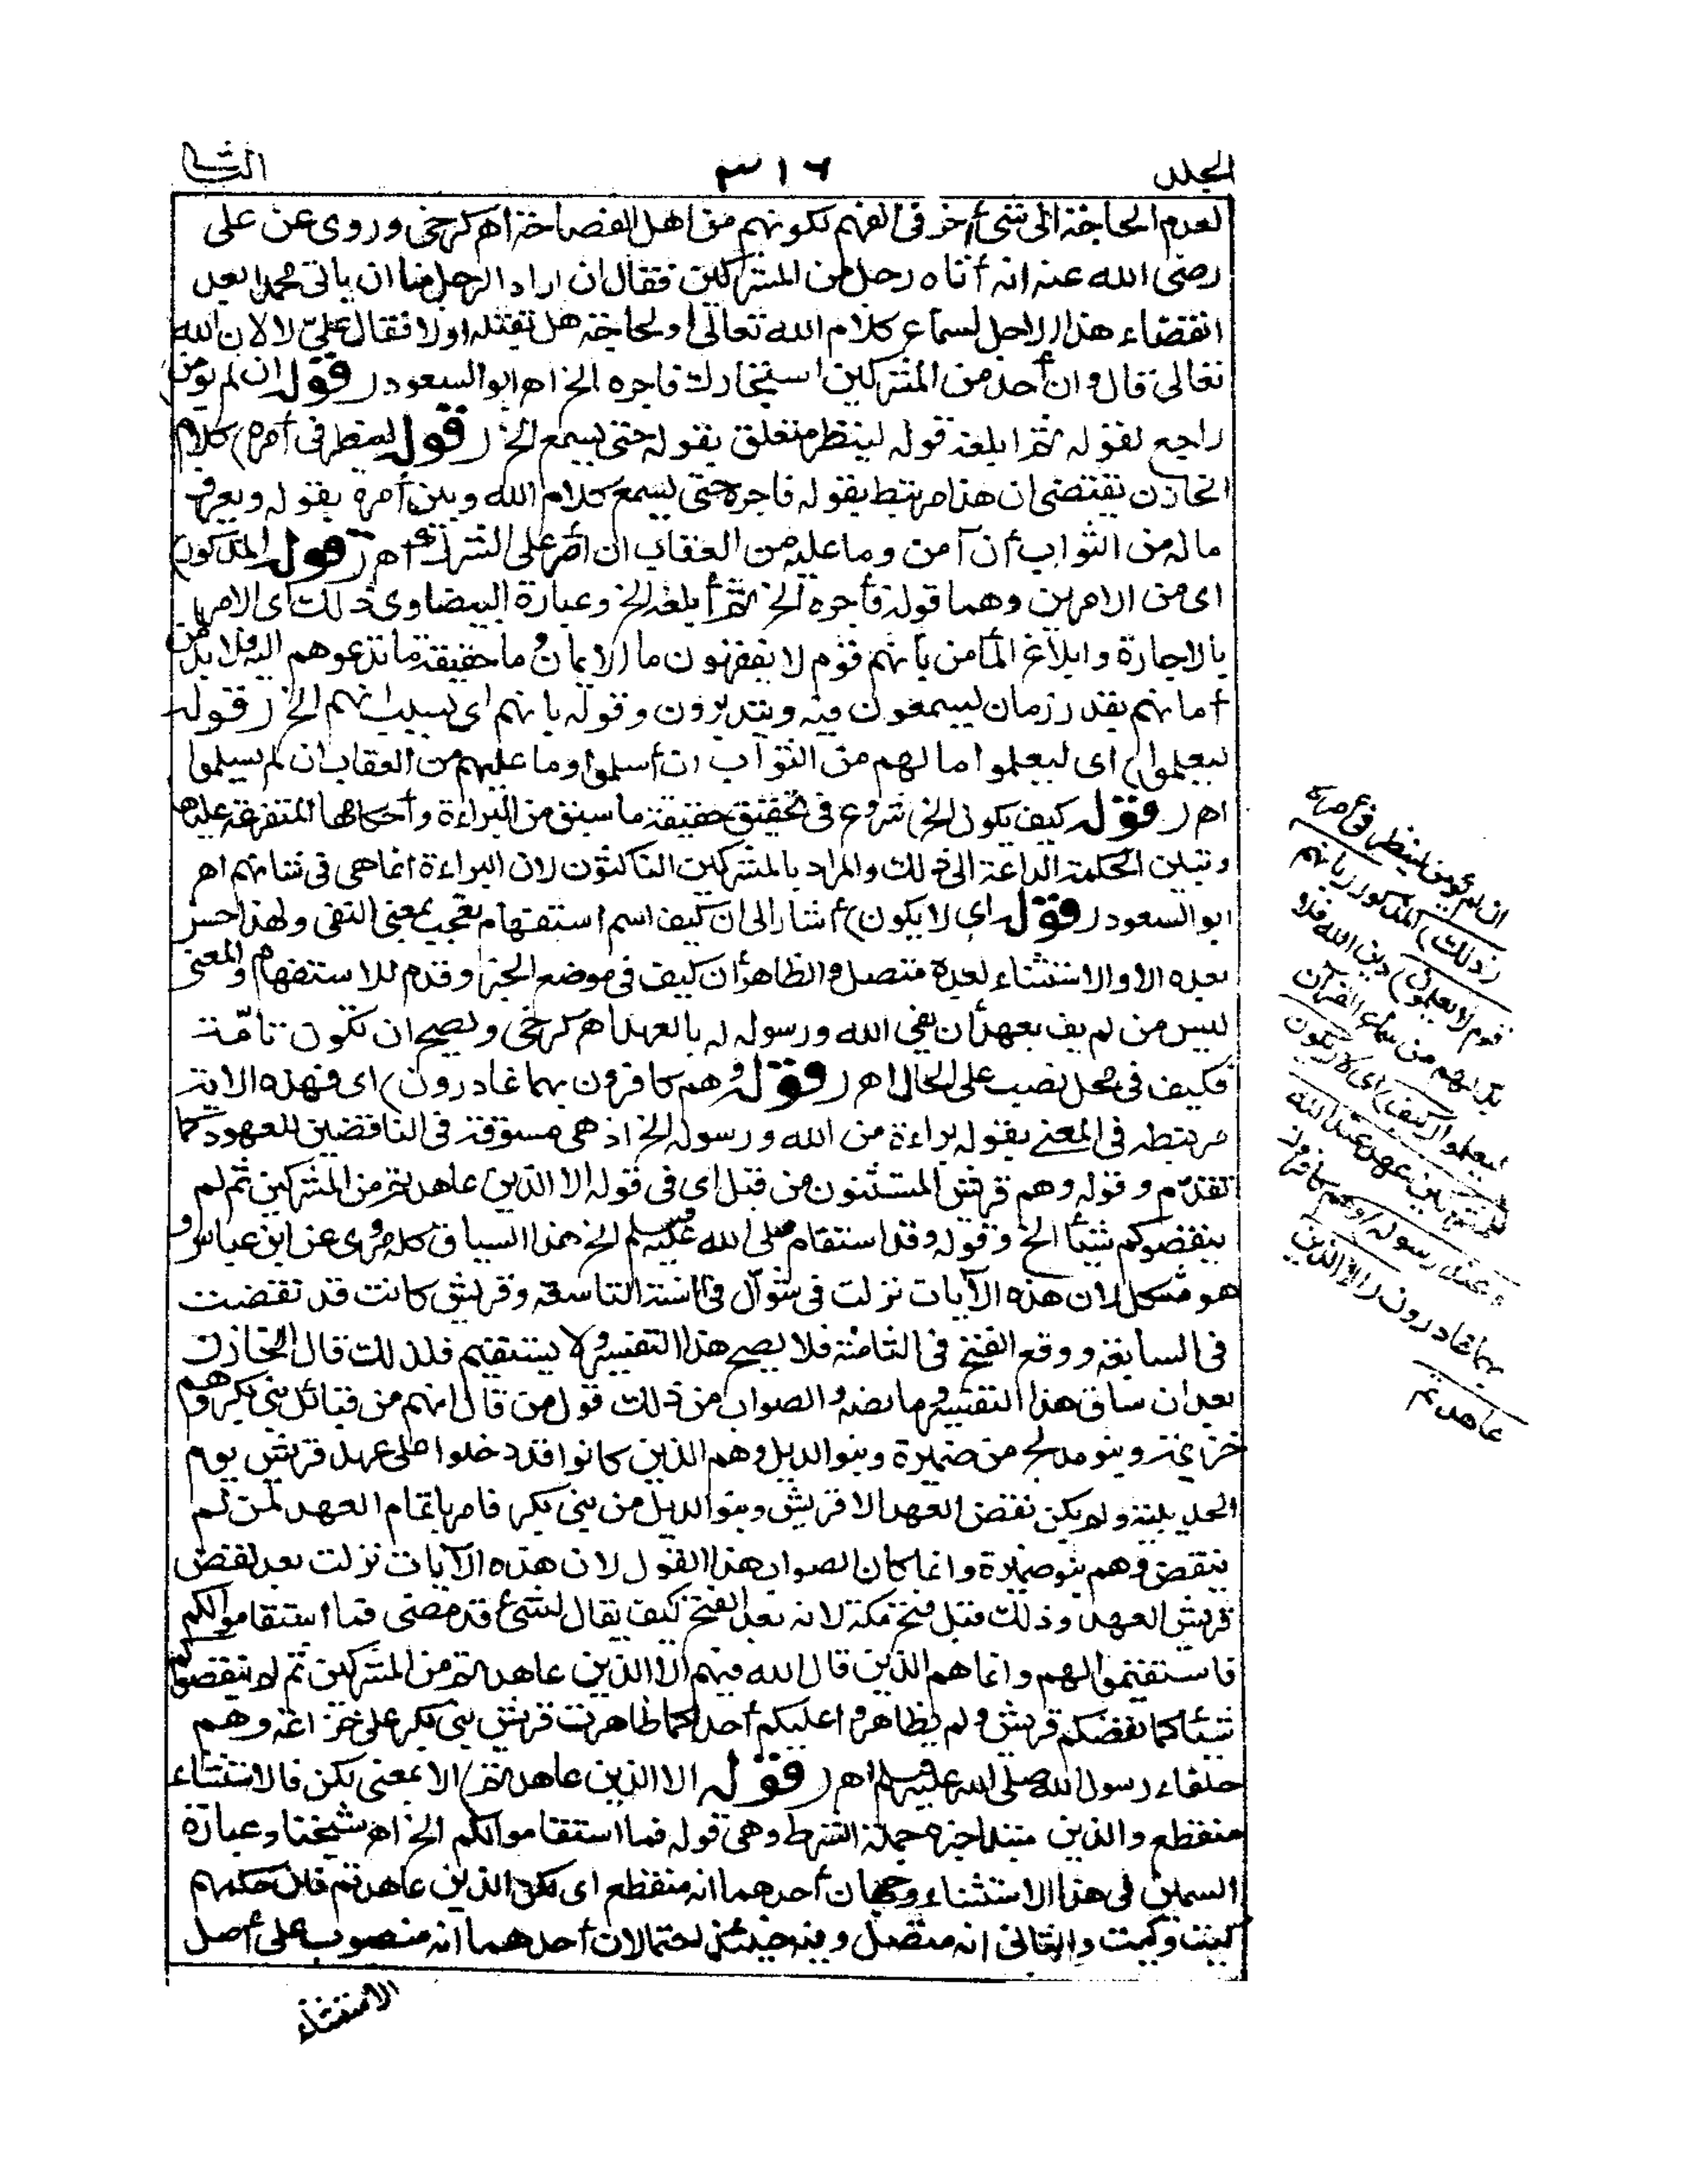 الجلد ٣١٦ الثا
لعدم الحاجة الى شئ أخر فى الفهم لكونهم من اهل الفصاحة اهـ كرخى وروى عن على
رضى الله عنه انه أتاه رجل من المشركين فقال ان اراد الرجل منا ان ياتى محمدا بعد
انقضاء هذا الاجل لسماع كلام الله تعالى او لحاجة هل يقتله او لا فقال علىّ لا لان الله
تعالى قال وان أحد من المشركين استجارك فاجره الخ اهـ ابو السعود (قوله ان لم يؤمن
راجع لقوله ثم ابلغه قوله لينظر متعلق بقوله حتى يسمع الخ (قوله لينظر فى أمره) كلام
الخازن يقتضى ان هذا مرتبط بقوله فاجره حتى يسمع كلام الله وبين أمره بقوله ويعرف
ماله من الثواب أن آمن وما عليه من العقاب ان أصر على الشرك أهـ (قوله المذكور)
اى من الامرين وهما قوله فأجره الخ ثم أبلغه الخ وعبارة البيضاوى ذلك أى الامر
بالاجارة وابلاغ المأمن بأنهم قوم لا يفقهون ما الايمان وما حقيقة ما تدعوهم اليه فلا بد من
أمانهم بقدر زمان يسمعون فيه ويتدبرون وقوله بانهم اى بسبب انهم الخ (قوله
ليعلموا) اى ليعلموا ما لهم من الثواب ان أسلموا وما عليهم من العقاب ان لم يسلموا
اهـ (قوله كيف يكون الخ) شروع فى تحقيق حقيقة ما سبق من البراءة وأحكامها المتفرعة عليها
وتبيين الحكمة الداعية الى ذلك والمراد بالمشركين الناكثون لان البراءة انما هى فى شانهم اهـ
ابو السعود (قوله اى لا يكون) أشار الى ان كيف اسم استفهام تعجب بمعنى النفى ولهذا حسن
بعده الا والاستثناء بعده متصل والظاهر أن كيف فى موضع الخبر وقدم للاستفهام والمعنى
ليس من لم يف بعهد أن يفى الله ورسوله له بالعهد اهـ كرخى ويصح ان تكون تامّة
فكيف فى محل نصب على الحال اهـ (قوله وهم كافرون بهما غادرون) اى فهذه الاية
مرتبطة فى المعنى بقوله براءة من الله ورسوله الخ اذ هى مسوقة فى الناقضين للعهود كما
تقدّم وقوله وهم قريش المستثنون من قبل اى فى قوله الا الذين عاهدتم من المشركين ثم لم
ينقضوكم شيئا الخ وقوله وقد استقام صلى الله عليه وسلم الخ هذا السياق كله مروى عن ابن عباس و
هو مشكل لان هذه الآيات نزلت فى شوّال فى السنة التاسعة وقريش كانت قد نقضت
فى السابعة ووقع الفتح فى الثامنة فلا يصح هذا التفسير ولا يستقيم فلذلك قال الخازن
بعد ان ساق هذا التفسير ما نصه والصواب من ذلك قول من قال انهم من قبائل بنى بكر وهم
خزيمة وبنو مدلج من ضميرة وبنو الديل وهم الذين كانوا قد دخلوا على عهد قريش يوم
الحديبية ولم يكن نقض العهد الا قريش وبنو الديل من بنى بكر فامر باتمام العهد لمن لم
ينقض وهم بنو ضميرة وانما كان الصواب هذا القول لان هذه الآيات نزلت بعد نقض
قريش العهد وذلك قبل فتح مكة لانه بعد الفتح كيف يقال لشئ قد مضى فما استقاموا لكم
فاستقيموا لهم وانما هم الذين قال الله فيهم الا الذين عاهدتم من المشركين ثم لم ينقصوكم
شيئا كما نقضكم قريش ولم يظاهروا عليكم أحدا كما ظاهرت قريش بنى بكر على خزاعة وهم
حلفاء رسول الله صلى الله عليه وسلم اهـ (قوله الا الذين عاهدتم) الا بمعنى لكن فالاستثناء
منقطع والذين مبتدا خبره جملة الشرط وهى قوله فما استقاموا لكم الخ اهـ شيخنا وعبارة
السمين فى هذا الاستثناء وجهان أحدهما انه منقطع اى لكن الذين عاهدتم فان حكمهم
كيت وكيت والثانى انه متصل وفيه حينئذ احتمالان أحدهما انه منصوب على أصل
الاستثناء
ان لم يؤمن لينظر فى أمره
(ذلك) المذكور (بانهم
قوم لا يعلمون) دين الله فلا
بد لهم من سماع القرآن
ليعلموا (كيف) اى لا يكون
للمشركين عهد عند الله
وعند رسوله) وهم كافرون
بهما غادرون (الا الذين
عاهدتم